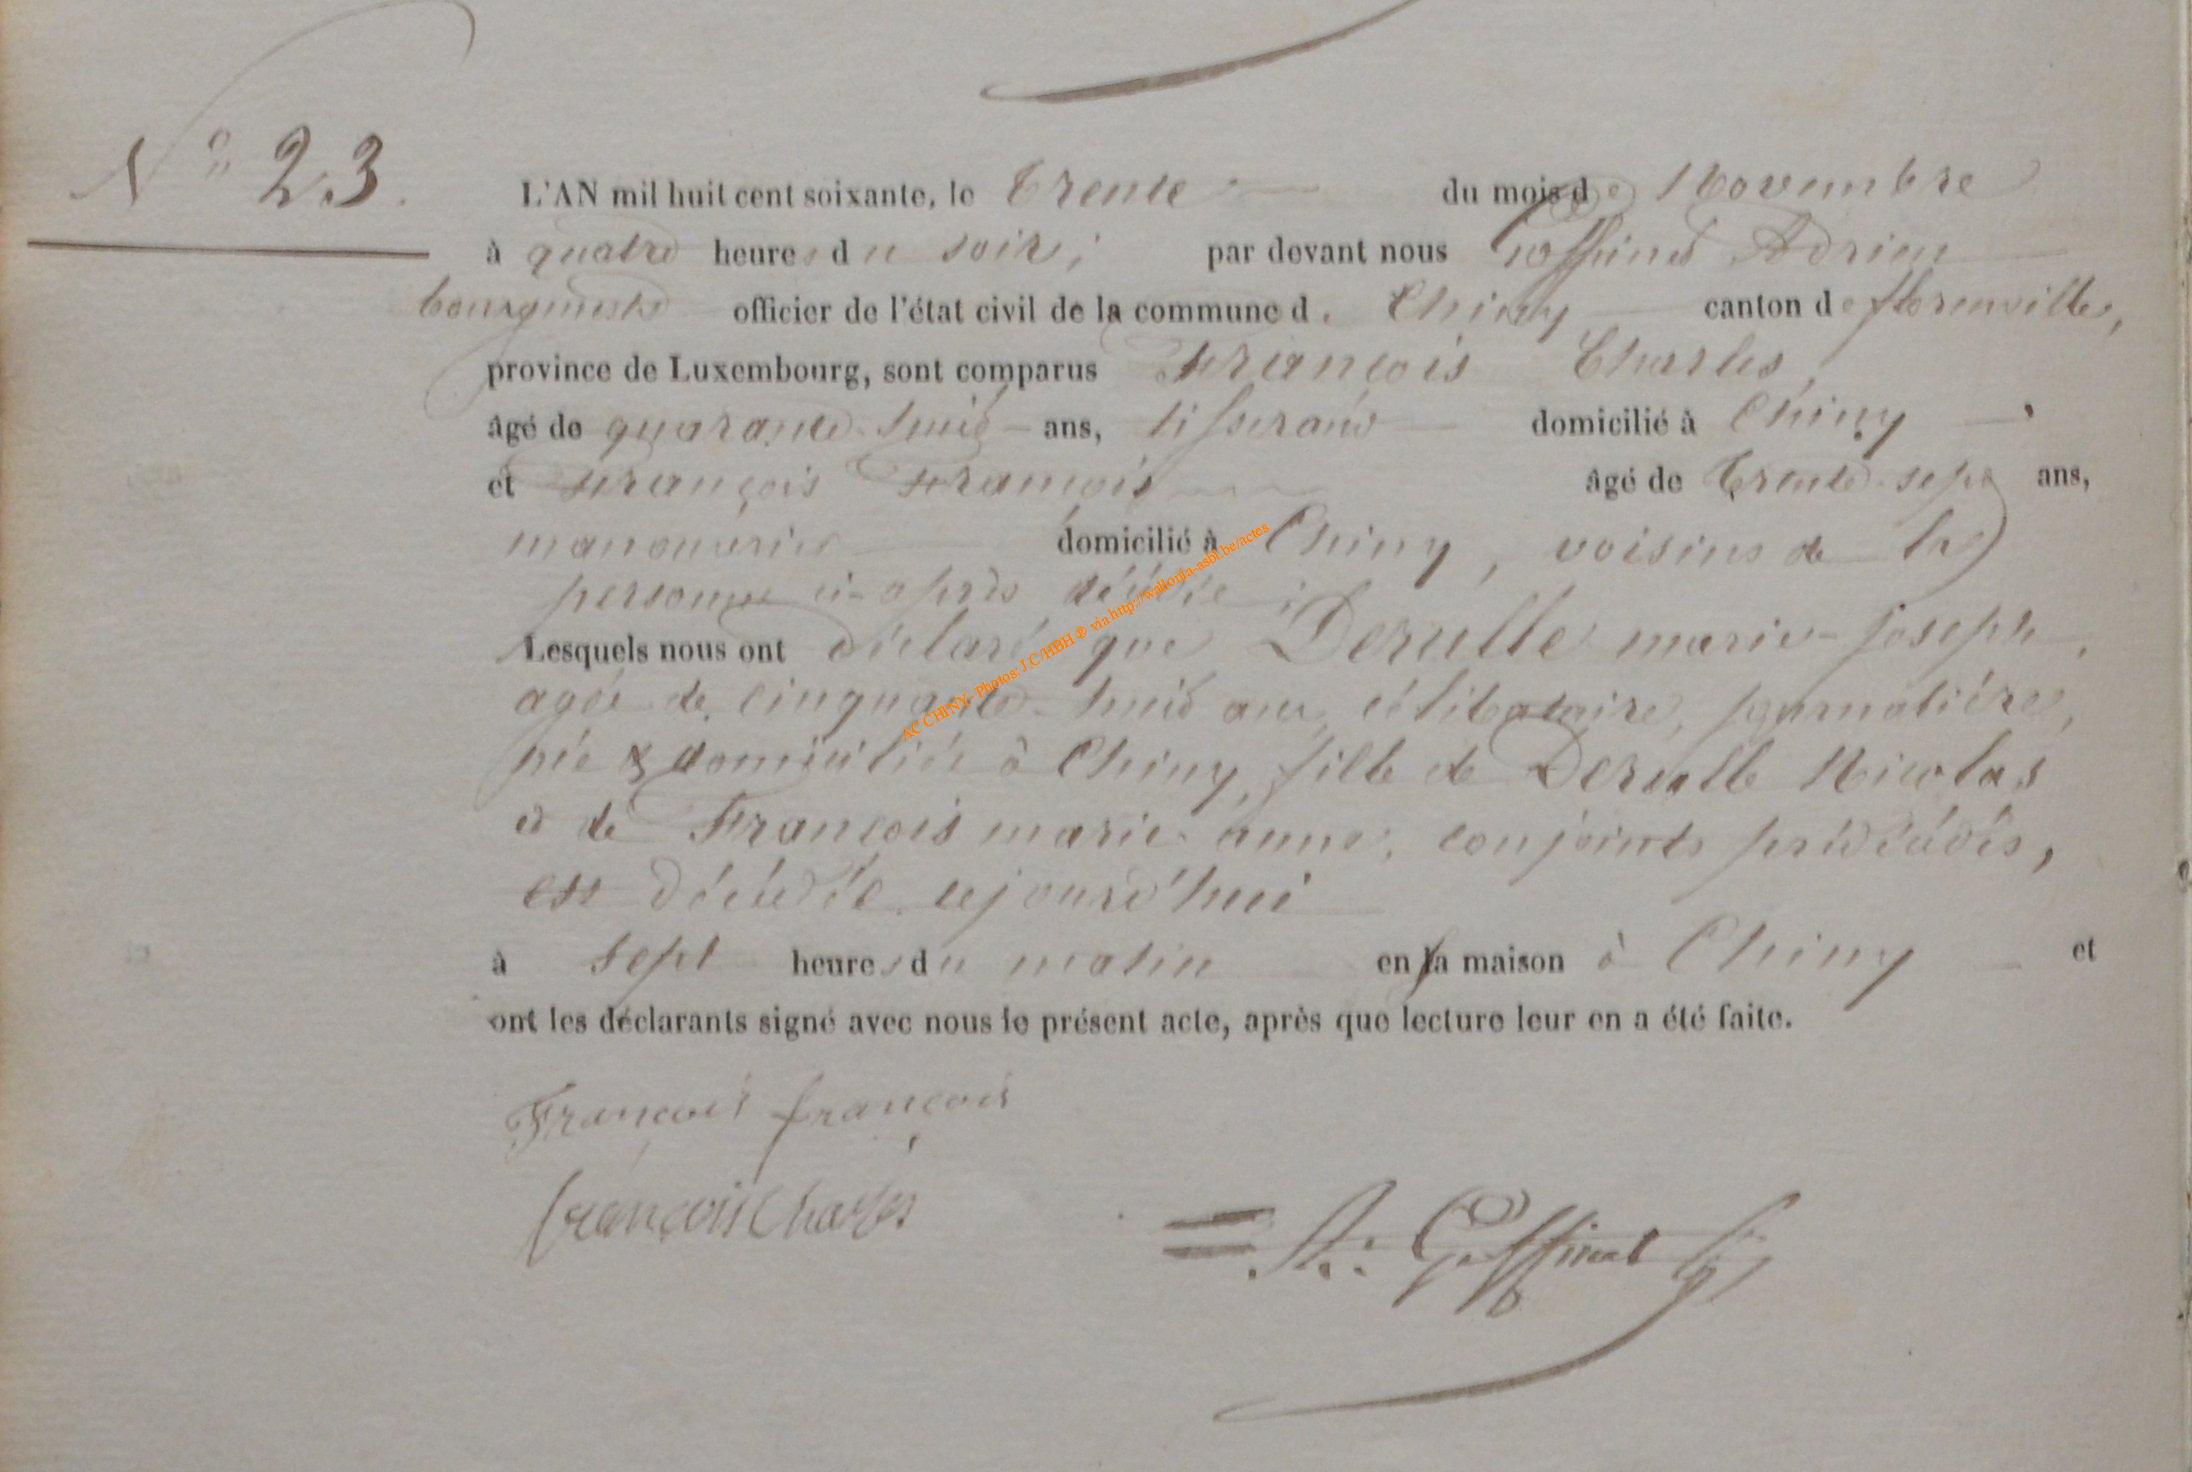 N° 23.
L'AN mil huit cent soixante, le Trente du mois de Novembre
à quatre heures du soir, par devant nous Goffinet Adrien
bourgmestre officier de l'état civil de la commune de Chiny canton de florenville,
province de Luxembourg, sont comparus François Charles,
âgé de quarante-huit ans, tisserand domicilié à Chiny
et François François âgé de trente-sept ans,
manouvrier domicilié à Chiny, voisins de la
personne ci-après décédée ;
Lesquels nous ont déclaré que Derulle marie-joseph,
agée de cinquante-huit ans, célibataire, journalière,
née & domiciliée à Chiny, fille de Derulle Nicolas
et de François marie-anne, conjoints prédécédés,
est décédée cejourd'hui
à sept heures du matin en sa maison à Chiny et
ont les déclarants signé avec nous le présent acte, après que lecture leur en a été faite.
François françois
françois Charles
A: Goffinet
AC CHINY- Photos: J.C/HBH ® via http://wallonia-asbl.be/actes